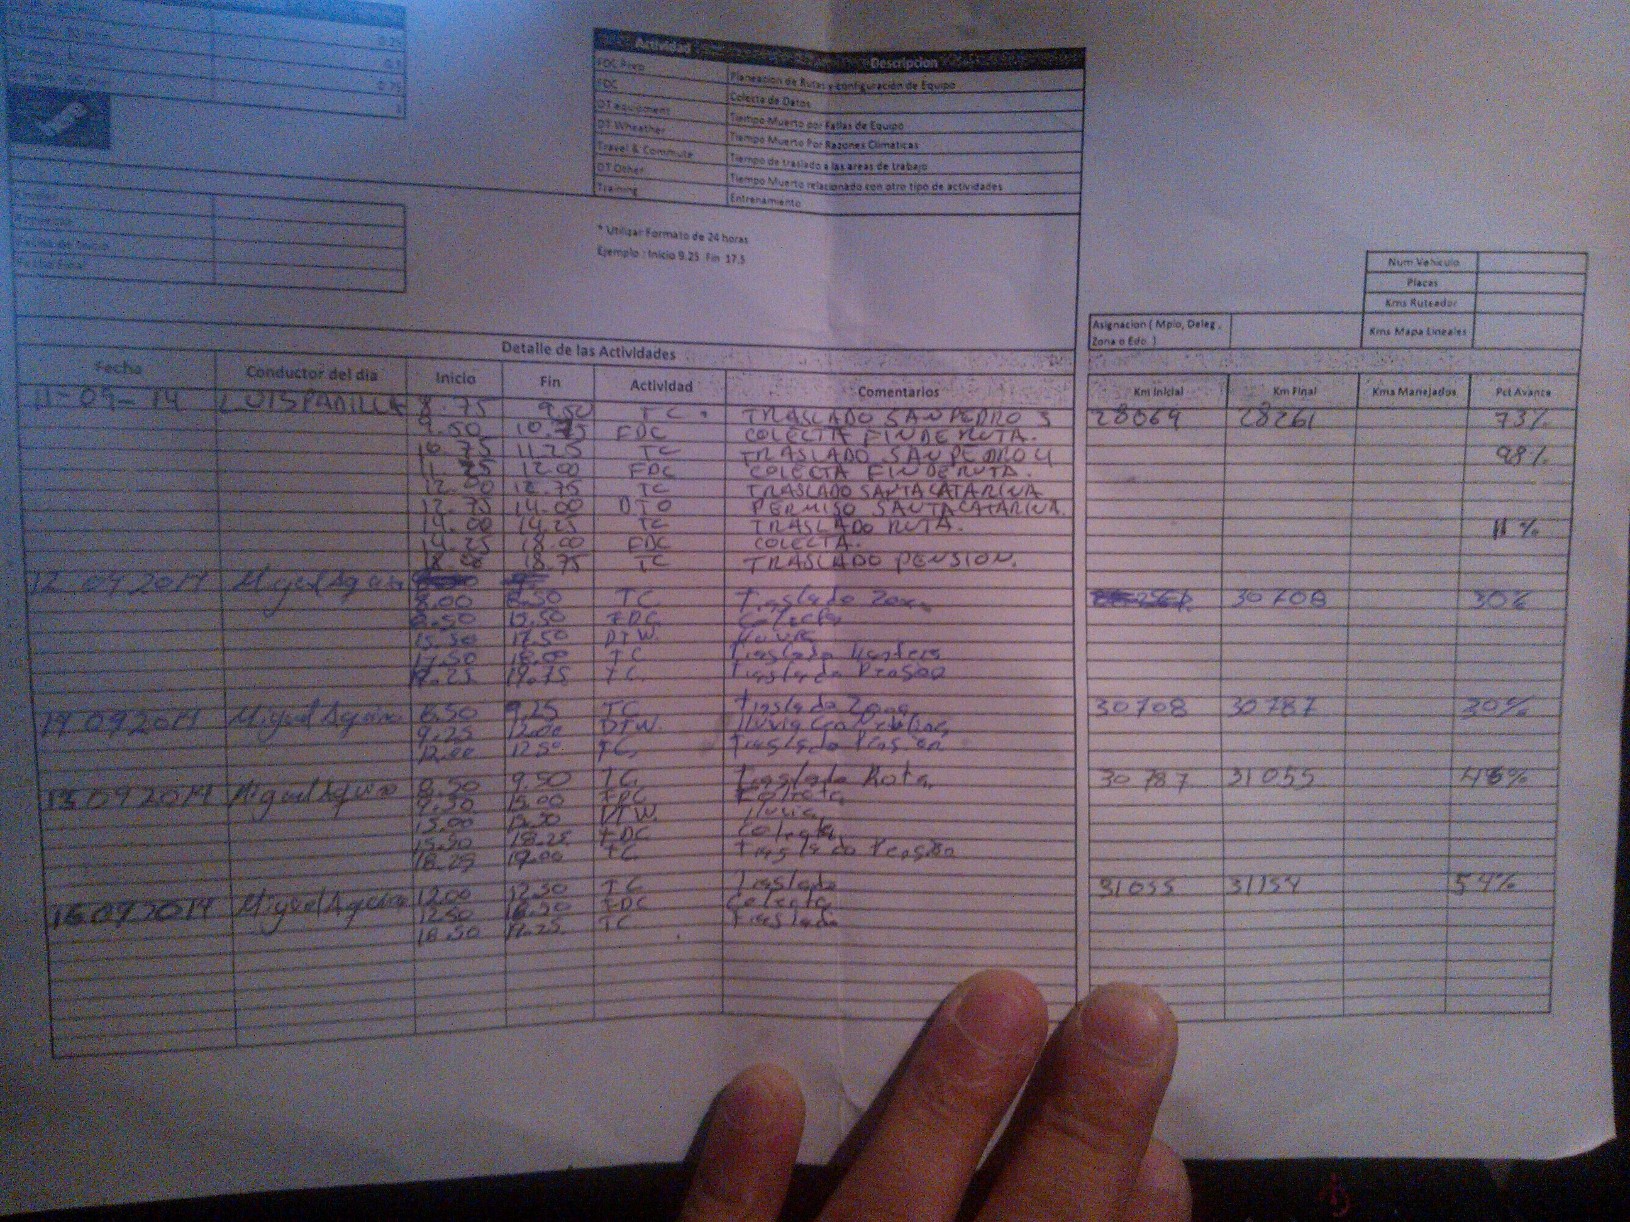 0.25
0.5
0.75
1
Actividad Descripcion
FDC Prep Planeacion de Rutas y configuración de Equipo
FDC Colecta de Datos
DT equipment Tiempo Muerto por Fallas de Equipo
DT Wheather Tiempo Muerto Por Razones Climaticas
Travel & Commute Tiempo de traslado a las areas de trabajo
DT Other Tiempo Muerto relacionado con otro tipo de actividades
Training Entrenamiento
* Utilizar Formato de 24 horas
Ejemplo : Inicio 9.25 Fin 17.5
Fecha de Inicio
Fecha Final
Num Vehiculo
Placas
Kms Ruteador
Kms Mapa Lineales
Asignacion ( Mpio, Deleg,
Zona o Edo. )
Detalle de las Actividades
Fecha Conductor del dia Inicio Fin Actividad Comentarios Km Inicial Km Final Kms Manejados Pct Avance
11-09-14 LUIS PADILLA 8.75 9.50 TC. TRASLADO SAN PEDRO 3 28069 28261 73%
9.50 10.75 FDC COLECTA FIN DE RUTA.
10.75 11.25 TC TRASLADO SAN PEDRO 4 98%
11.25 12.00 FDC COLECTA FIN DE RUTA.
12.00 12.75 TC TRASLADO SANTA CATARINA
12.75 14.00 DTO PERMISO SANTA CATARINA
14.00 14.25 TC TRASLADO RUTA. 11%
14.25 18.00 FDC COLECTA.
18.00 18.75 TC TRASLADO PENSION.
12 09 2014 Miguel Aguirre
8.00 8.50 TC Traslado Zona 30708 30%
8.50 15.50 FDC Colecta
15.50 17.50 DTW. lluvia
17.50 18.00 TC Traslado
19.25 19.75 TC. Traslado Pension
14 09 2014 Miguel Aguirre 8.50 9.25 TC Traslado Zona 30708 30787 30%
9.25 12.00 DTW. lluvia
12.00 12.50 TC, Traslado Pension
15 09 2014 Miguel Aguirre 8.50 9.50 TC. Traslado Ruta. 30787 31055 45%
9.50 15.00 FDC Colecta
15.00 15.50 DTW. lluvia
15.50 18.25 FDC Colecta
18.25 19.00 TC. Traslado Pension
16.09.2014 Miguel Aguirre 12.00 12.50 TC Traslado 31055 31154 54%
12.50 16.50 FDC Colecta
16.50 17.25 TC Traslado